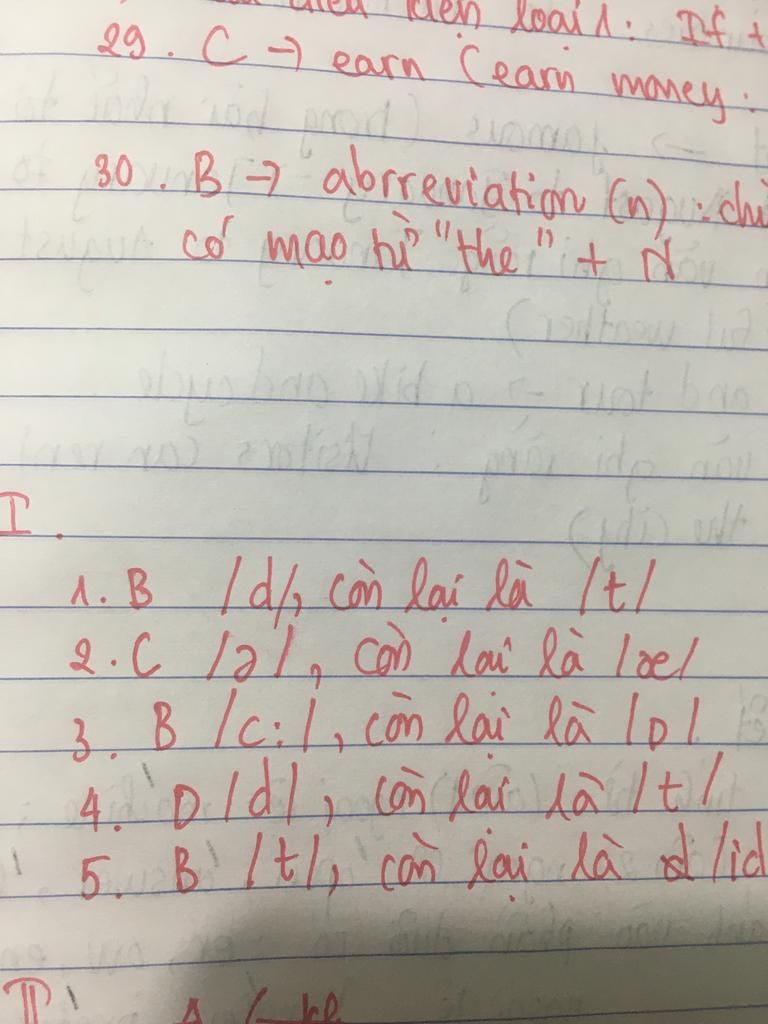 điều kiện loại 1: If +
29. C → earn (earn money.
30. B → abrreviation (n): chỉ
có mạo từ "the" + N
I.
1. B /d/, còn lại là /t/
2. C /ə/, còn lại là /æ/
3. B /c:/, còn lại là /ɒ/
4. D /d/, còn lại là /t/
5. B /t/, còn lại là d /id
II